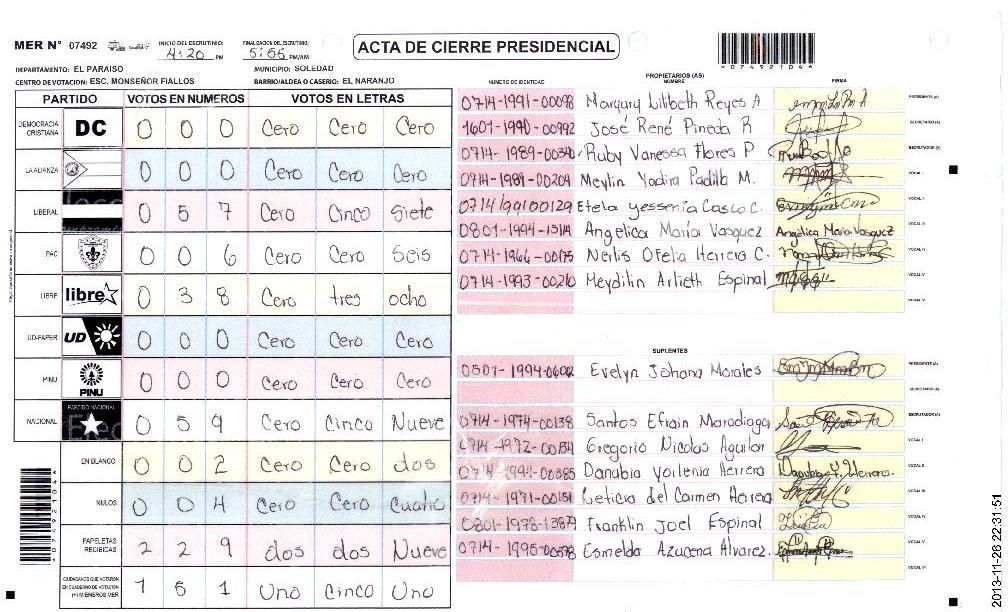 MER N° 07492 INICIO DEL ESCRUTINIO: 4:20 PM FINALIZACION DEL ESCRUTINIO: 5:55 PM/AM
ACTA DE CIERRE PRESIDENCIAL
*07492104*
DEPARTAMENTO: EL PARAISO MUNICIPIO: SOLEDAD
CENTRO DE VOTACION: ESC. MONSEÑOR FIALLOS BARRIO/ALDEA O CASERIO: EL NARANJO
PARTIDO VOTOS EN NUMEROS VOTOS EN LETRAS
DEMOCRACIA CRISTIANA DC 0 0 0 Cero Cero Cero
LA ALIANZA 0 0 0 Cero Cero Cero
LIBERAL 0 5 7 Cero Cinco Siete
PAC 0 0 6 Cero Cero Seis
LIBRE libre 0 3 8 Cero tres ocho
UD-FAPER UD 0 0 0 Cero Cero Cero
PINU PINU 0 0 0 Cero Cero Cero
NACIONAL PARTIDO NACIONAL 0 5 9 Cero Cinco Nueve
EN BLANCO 0 0 2 Cero Cero dos
NULOS 0 0 4 Cero Cero Cuatro
PAPELETAS RECIBIDAS 2 2 9 dos dos Nueve
CIUDADANOS QUE VOTARON EN CUADERNO DE VOTACION (+) MIEMBROS MER 1 5 1 Uno Cinco Uno
*07492104*
PROPIETARIOS (AS)
NUMERO DE IDENTIDAD NOMBRE FIRMA
0714-1991-00098 Margury Lilibeth Reyes A PRESIDENTE (A)
1601-1990-00992 José René Pineda R SECRETARIO (A)
0714-1989-00340 Ruby Vanessa Flores P ESCRUTADOR (A)
0714-1989-00204 Meylin Yadira Padilla M. VOCAL I
0714199100129 Etela Yessenia Casco C. VOCAL II
0801-1994-15114 Angelica María Vasquez Angelica Maria Vasquez VOCAL III
0714-1966-00175 Nerlis Ofelia Herrera C. VOCAL IV
0714-1993-00210 Meydilin Arlieth Espinal VOCAL V
VOCAL VI
SUPLENTES
0501-1994-0602 Evelyn Johana Morales PRESIDENTE (A)
SECRETARIO (A)
0714-1974-00138 Santos Efrain Maradiaga ESCRUTADOR (A)
0714-1972-00134 Gregorio Nicolas Aguilar VOCAL I
0714-1994-00385 Danubia Yorlenia Herrera Danubia Y. Herrera. VOCAL II
0714-1971-00151 Leticia del Carmen Herrera VOCAL III
0801-1978-13879 Franklin Joel Espinal VOCAL IV
0714-1995-00578 Esmelda Azucena Alvarez. VOCAL V
VOCAL VI
2013-11-26 22:31:51